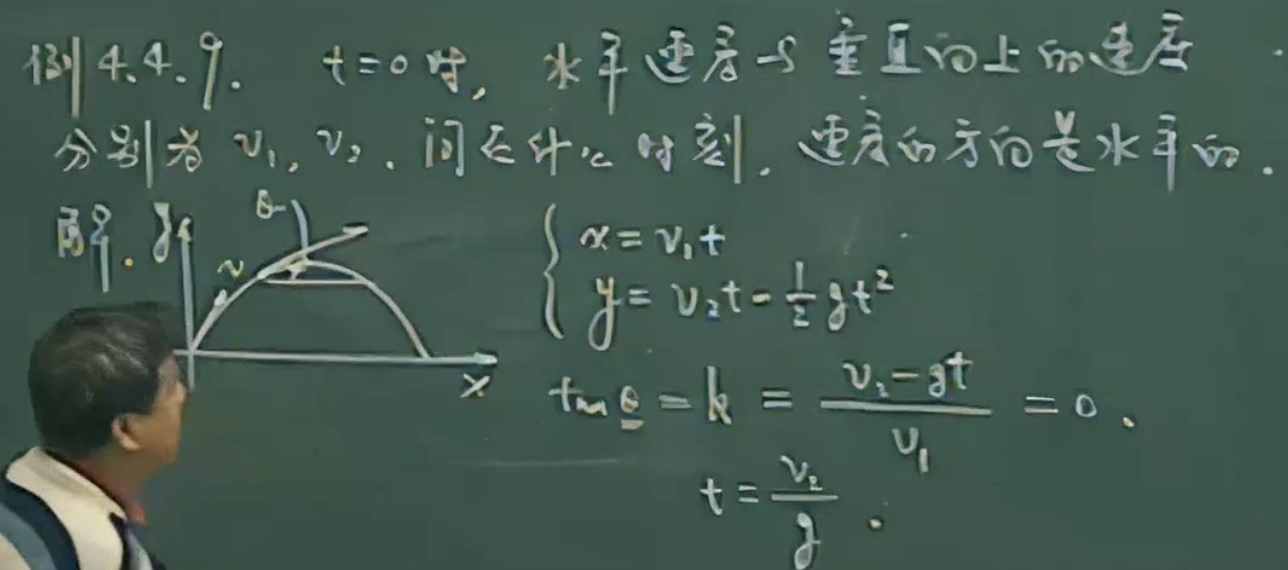 例4.4.9. t=0时, 水平速度与垂直向上的速度
分别为 v₁, v₂, 问在什么时刻, 速度的方向是水平的.
解. y
θ
v
x
{ x = v₁t
y = v₂t - 1/2 gt²
tanθ = k = (v₂-gt)/v₁ = 0.
t = v₂/g.